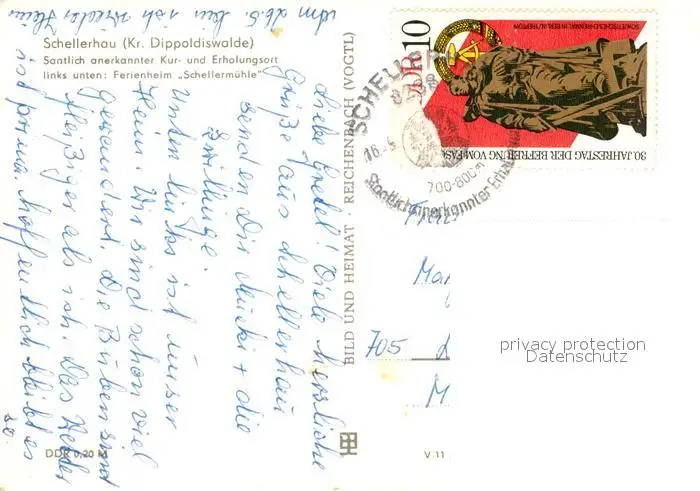 Schellerhau (Kr. Dippoldiswalde)
Saatlich anerkannter Kur- und Erholungsort
links unten: Ferienheim „Schellermühle"
Liebe Gretel! Viele herzliche
Grüße aus Schellerhau
senden Dir Mucki + die
Zwillinge
Unten links ist unser
Heim. Wir sind schon viel
gewandert. Die Buben sind
fleißiger als ich. Das Wetter
ist prima hoffentlich bleibt es
so.
Am 26.5. bin ich wieder
BILD UND HEIMAT REICHENBACH (VOGTL)
DDR 0,20 M
V 11
DDR 10
SOWJETISCHES EHRENMAL IN BERLIN-TREPTOW
30. JAHRESTAG DER BEFREIUNG VOM FAS
SCHELLERH
16.5
700-800 m
Staatlich anerkannter Erho
Frau
Mar
705 L
M
privacy protection
Datenschutz